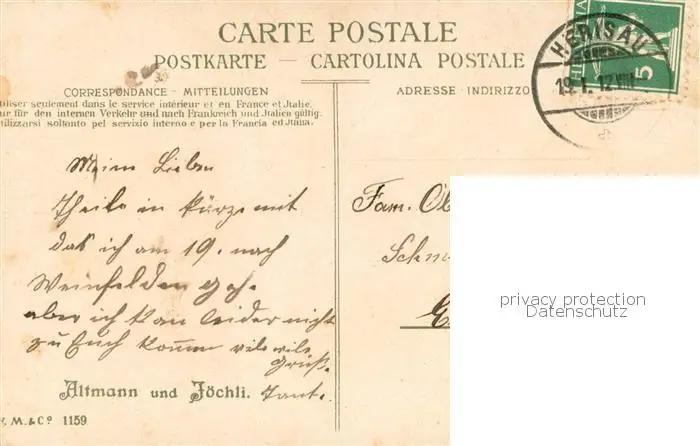 CARTE POSTALE
POSTKARTE — CARTOLINA POSTALE
CORRESPONDANCE - MITTEILUNGEN
ADRESSE - INDIRIZZO
tiliser seulement dans le service intérieur et en France et Italie.
ur für den internen Verkehr und nach Frankreich und Italien gültig.
tilizzarsi soltanto pel servizio interno e per la Francia ed Italia.
HERISAU
19.I.12.VIII
HELVETIA
5
Meine Lieben
Theile in kürze mit
das ich am 19. nach
Weinfelden geh.
aber ich kan leider nicht
zu Euch komm vile vile
Grüß.
Altmann und Jöchli. Tant.
Fam.
Schn
E
M. & Cº 1159
privacy protection
Datenschutz